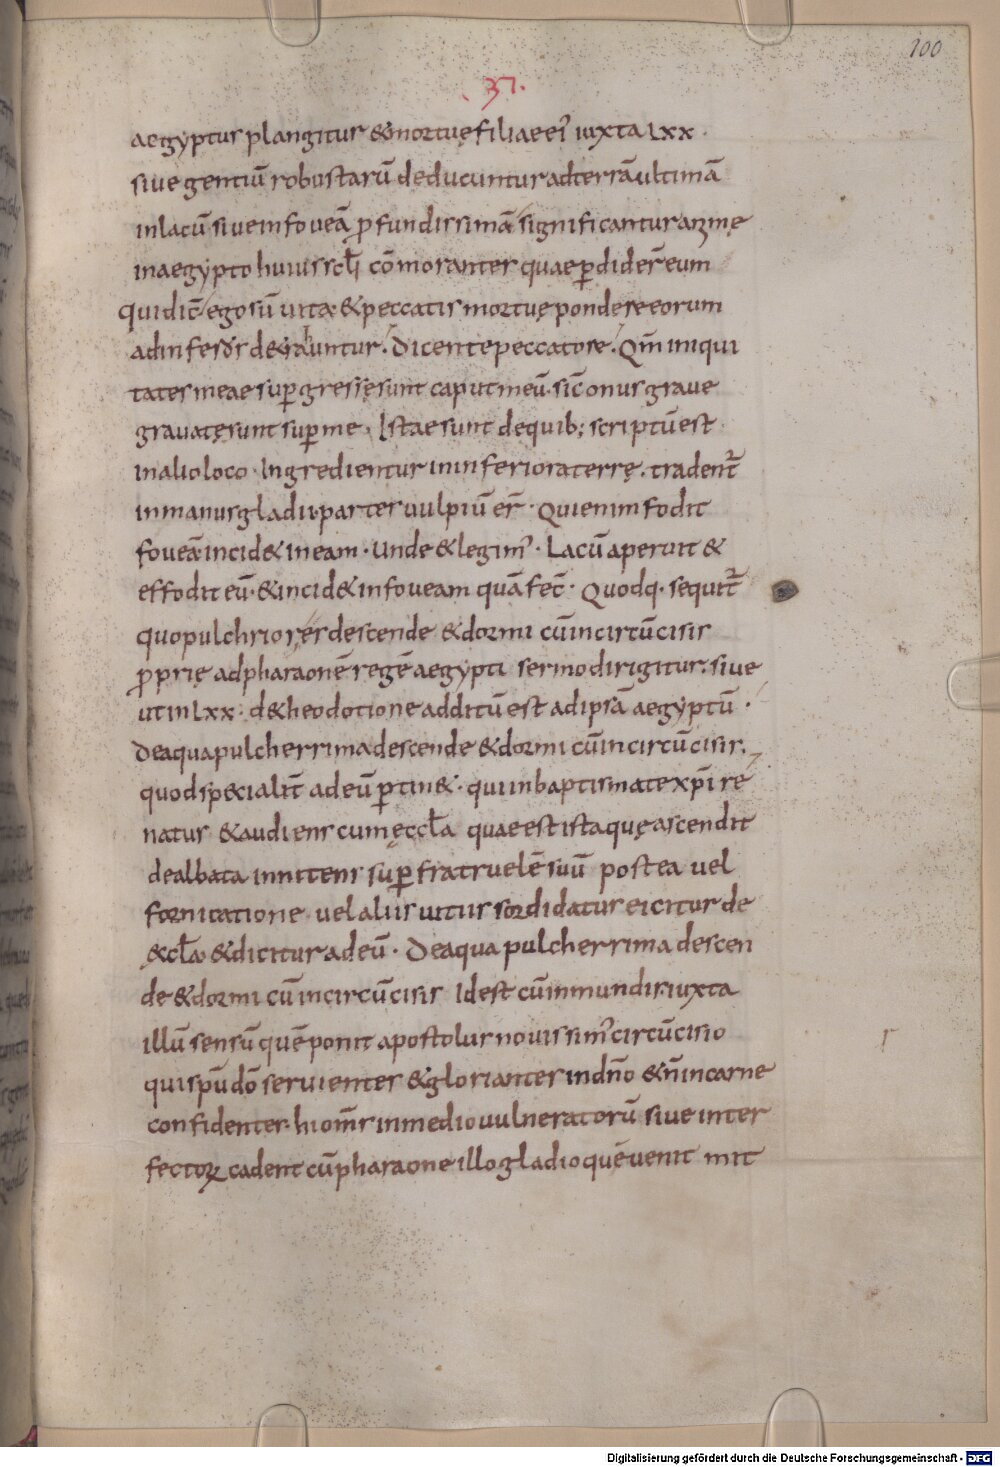 100
37.
aegyptus plangitur & mortuę filiae ei' iuxta lxx.
siue gentiū robustarū deducuntur ad terrā ultimā
in lacū siue in foueā ꝓfundissimā significantur animę
in aegypto huius scl̄i cōmorantes quae ꝑdider̄ eum
qui dic̄ ego sū uita & peccatis mortuę pondere eorum
ad inferos deuntur. Dicente peccatore. Qm̄ iniqui
tates meae suꝑgressę sunt caput meū. sic onus graue
grauatę sunt suꝑ me. Istae sunt de quib; scriptū est
in alio loco. Ingredientur in inferiora terrę. tradent̄
in manus gladii. partes uulpiū er̄. Qui enim fodit
foueā incid& in eam. Unde & legim'. Lacū aperuit &
effodit eū. & incid& in foueam quā fec̄. Quodq. sequit̄
quo pulchriores descende & dormi cū incircūcisis
ꝓprię ad pharaonē regē aegypti sermo dirigitur. siue
ut in lxx. de theodotione additū est ad ipsā aegyptū.
De aqua pulcherrima descende & dormi cū incircūcisis.
quod specialit̄ ad eū ꝑtin&. qui in baptismate xp̄i re
natus & audiens cum ęccl̄a quae est ista quę ascendit
dealbata innitens suꝑ fratruelē suū postea uel
fornicatione uel aliis uitiis sordidatus eicitur de
ęccl̄a & dicitur ad eū. De aqua pulcherrima descen
de & dormi cū incircūcisis Id est cū inmundis. iuxta
illū sensū quē ponit apostolus nouissim' circūcisio
qui sp̄u dō seruientes & gloriantes in dn̄o & n̄ in carne
confidentes. hi om̄s in medio uulneratorū siue inter
fectoꝝ cadent cū pharaone illo gladio quē uenit mit
Digitalisierung gefördert durch die Deutsche Forschungsgemeinschaft - DFG